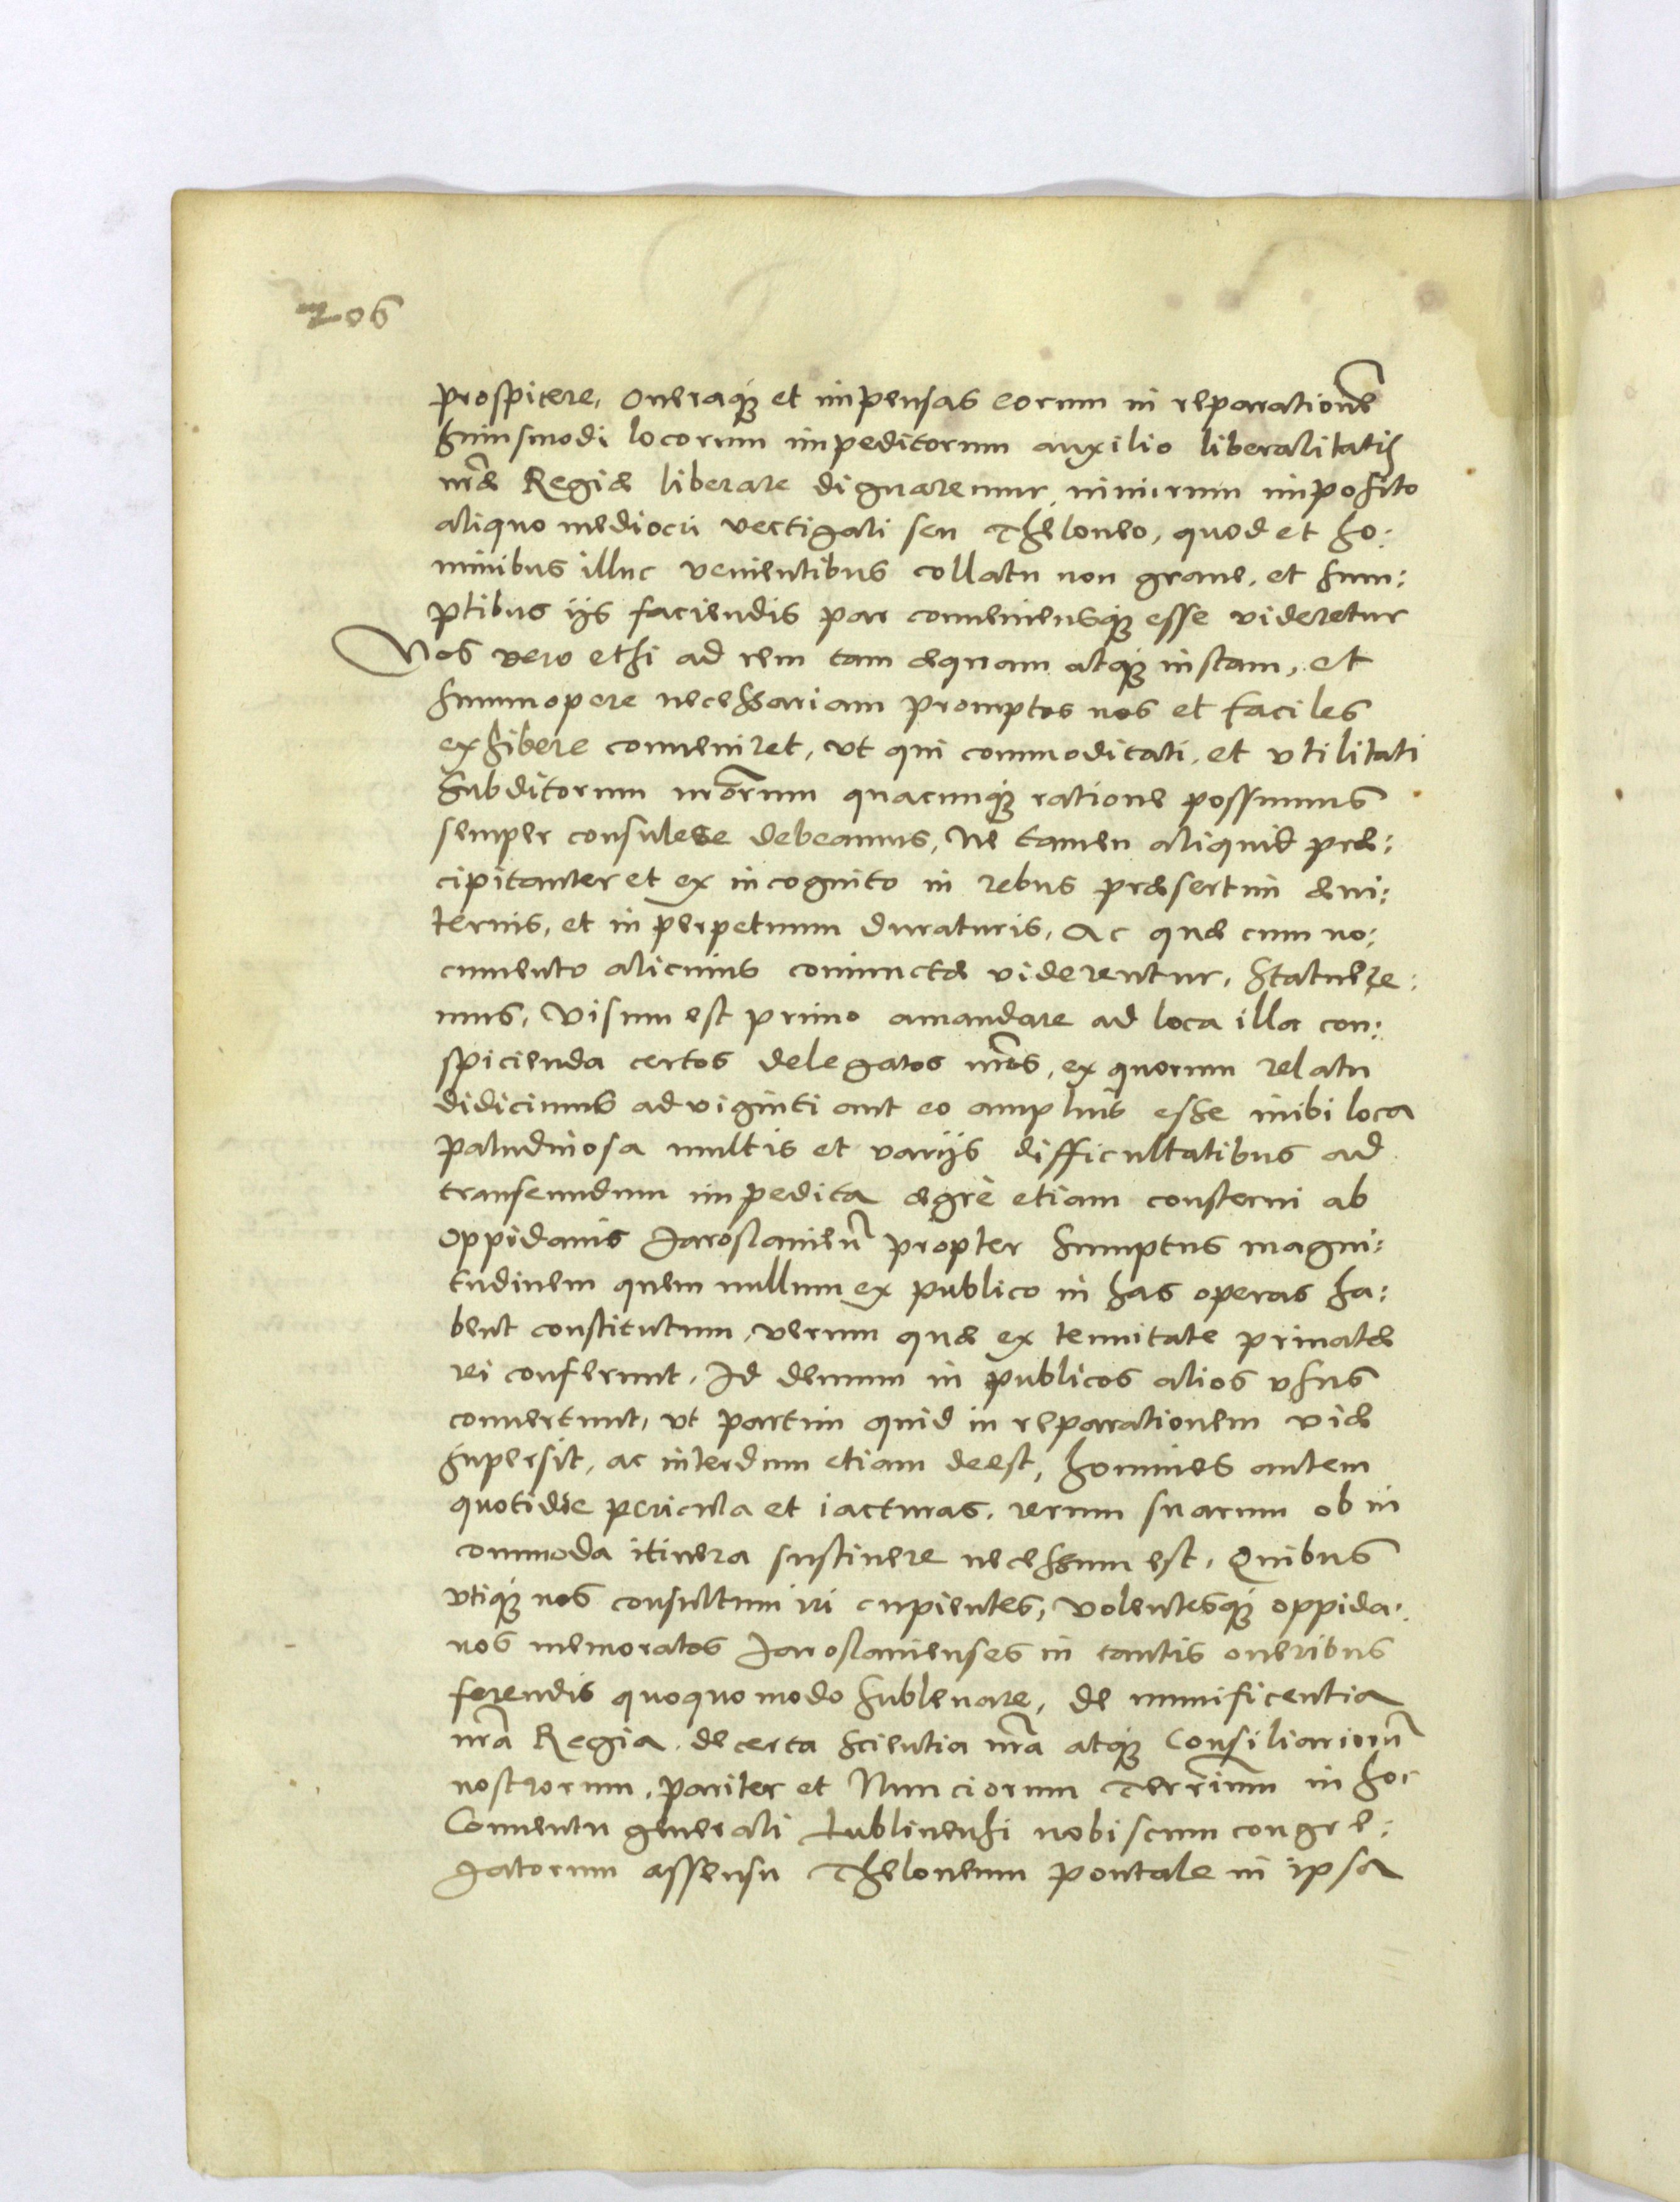 206
prospicere, oneraq́ꝫ et impensas eorum in reparationē
huiusmodi locorum impeditorum auxilio liberalitatis
nr̃æ Regiæ liberare dignaremur, nimirum imposito
aliquo mediocri vectigali seu Theloneo, quod et ho:
minibus illuc venientibus collatu non graue, et sum:
ptibus ijs faciendis par conueniensq́ꝫ esse videretur
Nos vero etsi ad rem tam æquam atq́ꝫ iustam, et
summopere necessariam promptos nos et faciles
exhibere conueniret, vt qui commoditati, et vtilitati
Subditorum nr̃orum quacunq́ꝫ ratione possumus
semper consulere debeamus, Ne tamen aliquid præ:
cipitanter et ex incognito in rebus præsertim æui:
ternis, et in perpetuum duraturis, Ac quæ cum no:
cumento alicuius coniunctæ viderentur, Statuere:
mus, Visum est primo amandare ad loca illa con:
spicienda certos delegatos nr̃os, ex quorum relatu
didicimus ad viginti aut eo amplius esse inibi loca
paludinosa multis et varijs difficultatibus ad
transeundum impedita ægrè etiam consterni ab
Oppidanis Jaroslauien̄ propter sumptus magni:
tudinem quem nullum ex publico in has operas ha:
bent constitutum, verum quæ ex tenuitate priuatæ
rei conferunt, Id demum in publicos alios vsus
conuertunt, vt partim quid in reparationem viæ
supersit, ac interdum etiam deest, homines autem
quotidie pericula et iacturas, rerum suarum ob in
commoda itinera sustinere necessum est, Quibus
vtiq́ꝫ nos consultum iri cupientes, volentesq́ꝫ oppida:
nos memoratos Jaroslauienses in tantis oneribus
ferendis quoquomodo subleuare, de munificentia
nr̃a Regia, de certa scientia nr̃a atq́ꝫ Consiliariorū
nostrorum, pariter et Nunciorum Terr̃ium in hoc
Conuentu generali Lublinensi nobiscum congre:
gatorum assensu Theloneum pontale in ipsa